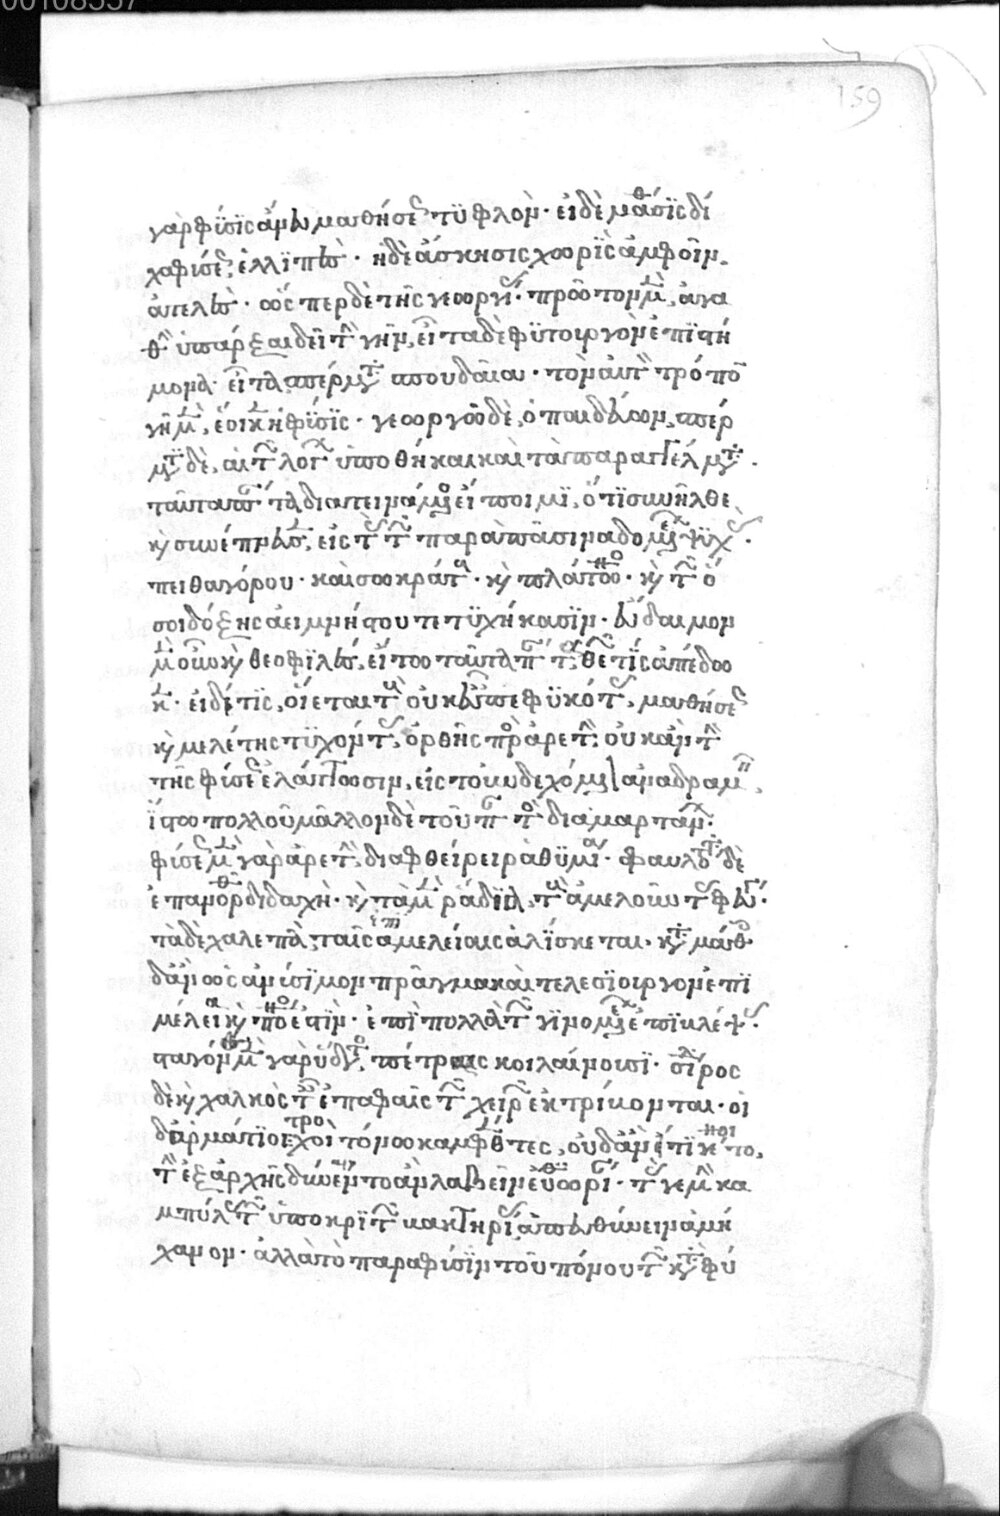 00108557
159
γὰρ φύσις ἄνευ μαθήσεως τυφλὸν· εἰ δὲ μάθησις δί
χα φύσεως, ἐλλιπὲς· ἡ δὲ ἄσκησις χωρὶς ἀμφοῖν
ἀτελὲς· ὥσπερ δὲ τῆς γεωργίας· πρῶτον μὲν, ἀγα
θὴν ὑπάρξαι δεῖ τὴν γῆν, εἶτα δὲ φυτουργὸν ἐπιστή
μονα· εἶτα σπέρματα σπουδαῖα· τὸν αὐτὸν τρόπον
γῆ μὲν, ἔοικεν ἡ φύσις· γεωργῶ δὲ, ὁ παιδεύων, σπέρ
ματι δὲ, αἱ τῶν λόγων ὑποθῆκαι καὶ τὰ παραγγέλματα.
ταῦτα πάντα διατεινάμενος εἴποιμι, ὅτι συνῆλθε
καὶ συνέπνευσεν, εἰς τὰς τῶν παρὰ πᾶσιν ἀδομένων ψυχὰς.
πειθαγόρου· καὶ σωκράτους· καὶ πλάτωνος· καὶ τῶν ὅ
σοι δόξης ἀειμνήστου τετυχήκασιν· εὔδαιμον
μὲν οὖν καὶ θεοφιλὲς, εἴ τω ταῦτα πάντα τῶν θεῶν τὶς ἀπέδω
κεν· εἰ δέ τις, οἴεται τοὺς οὐκ εὖ πεφυκότας, μαθήσεως
καὶ μελέτης τυχόντας, ὀρθῆς πρὸς ἀρετὴν, οὐκ ἂν τὴν
τῆς φύσεως ἐλάττωσιν, εἰς τοὐνδεχόμενον ἀναδραμεῖν,
ἴστω πολλοῦ μᾶλλον δὲ τοῦ παντὸς διαμαρτάνων·
φύσεως μὲν γὰρ ἀρετὴν, διαφθείρει ῥαθυμία· φαυλότητα δὲ
ἐπανορθοῖ διδαχὴ· καὶ τὰ μὲν ῥάδια, τοὺς ἀμελοῦντας φεύγει·
τὰ δὲ χαλεπὰ, ταῖς ἐπιμελείαις ἁλίσκεται· καταμάθοις
δ' ἂν ὡς ἀνύσιμον πρᾶγμα καὶ τελεσιουργὸν ἐπι
μέλεια καὶ πόνος ἐστὶν· ἐπὶ πολλὰ τῶν γινομένων ἐπιβλέψας.
σταγόνες μὲν γὰρ ὕδατος, πέτρας κοιλαίνουσι· σίδηρος
δὲ καὶ χαλκὸς ταῖς ἐπαφαῖς τῶν χειρῶν ἐκτρίβονται· οἱ
δ' ἁρμάτιοι τροχοὶ τόνω καμφθέντες, οὐδ' ἂν εἴ τι γένοιτο,
τὴν ἐξ ἀρχῆς δύναιντο ἀναλαβεῖν εὐθυωρίαν· τάς γε μὴν κα
μπύλας τῶν ὑποκριτῶν βακτηρίας ἀπευθύνειν ἀμή
χανον· ἀλλὰ τὸ παρὰ φύσιν τοῦ πόνου τῶν κατὰ φύ